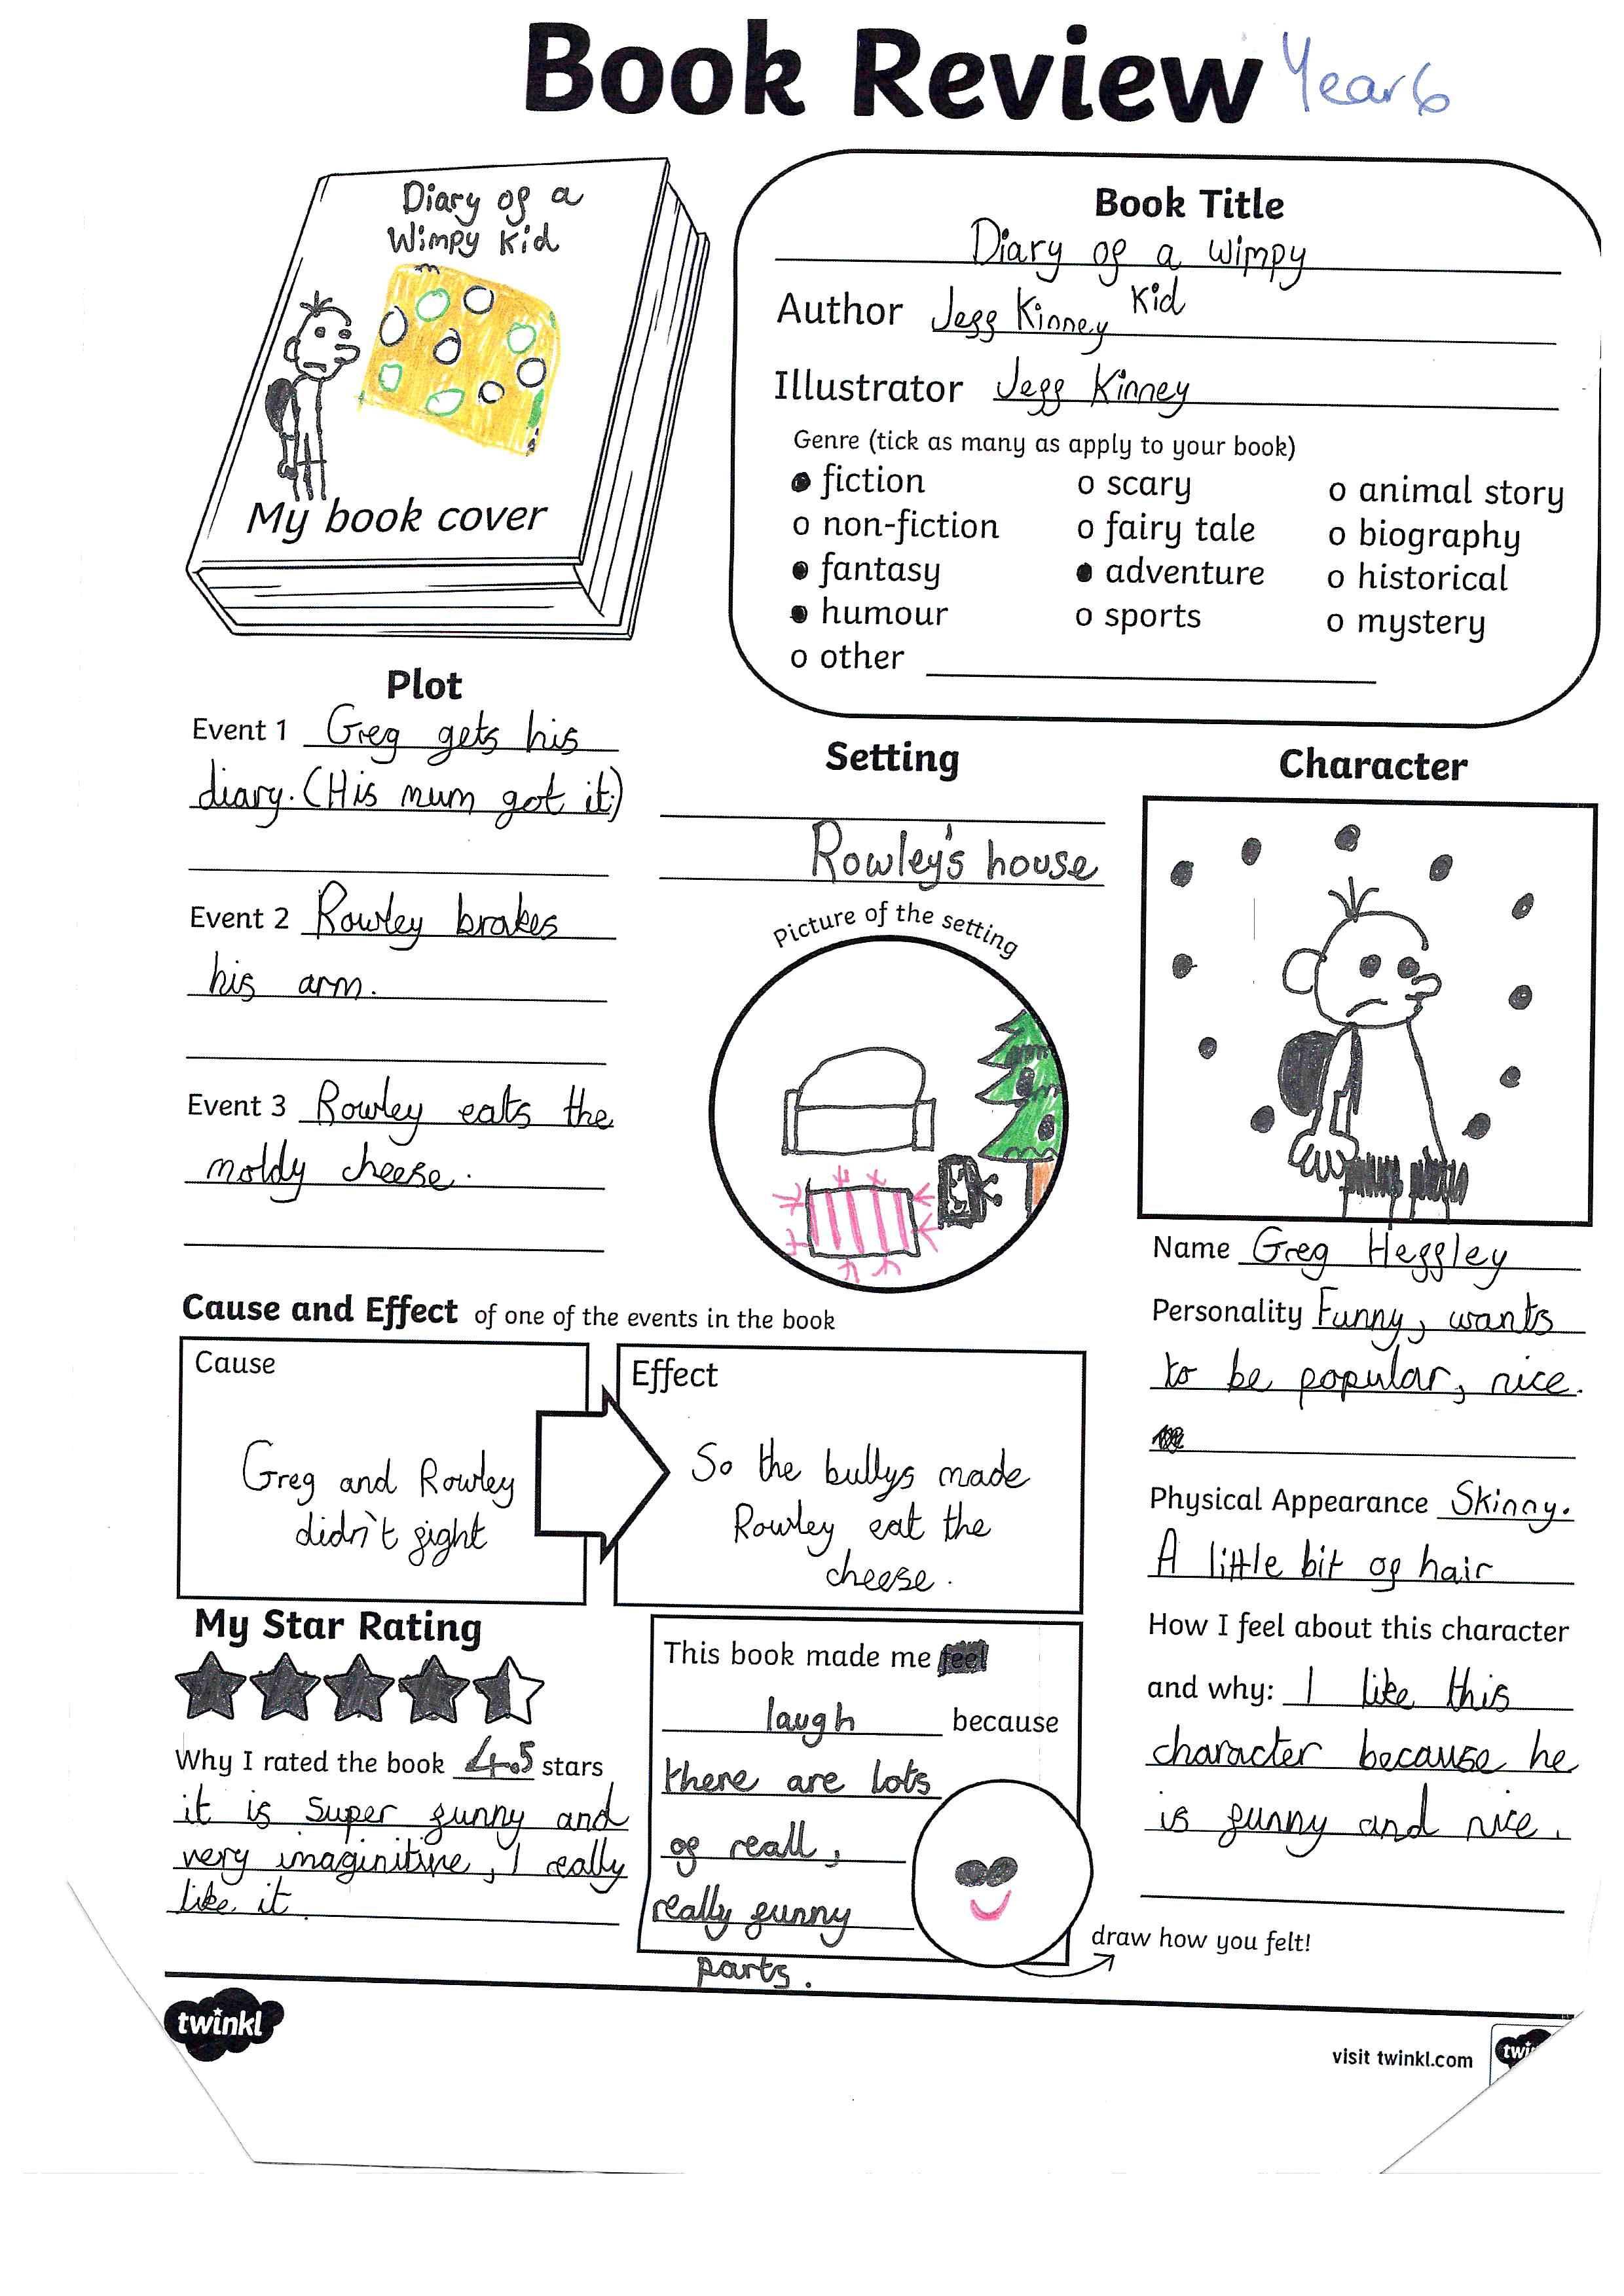 Book Review Year 6
Diary of a
Wimpy Kid
My book cover
Book Title
Diary of a Wimpy
Kid
Author Jeff Kinney
Illustrator Jeff Kinney
Genre (tick as many as apply to your book)
fiction
non-fiction
fantasy
humour
other
scary
fairy tale
adventure
sports
animal story
biography
historical
mystery
Plot
Event 1 Greg gets his
diary. (His mum got it.)
Event 2 Rowley brakes
his arm.
Event 3 Rowley eats the
moldy cheese.
Setting
Rowley's house
Picture of the setting
Character
Name Greg Heffley
Personality Funny, wants
to be popular, nice.
Physical Appearance Skinny.
A little bit of hair
How I feel about this character
and why: I like this
character because he
is funny and nice.
Cause and Effect of one of the events in the book
Cause
Greg and Rowley
didn't fight
Effect
So the bullys made
Rowley eat the
cheese.
My Star Rating
Why I rated the book 4.5 stars
it is super funny and
very imaginitive, I really
like it.
This book made me feel
laugh because
there are lots
of reall,
really funny
parts.
draw how you felt!
twinkl
visit twinkl.com
twi